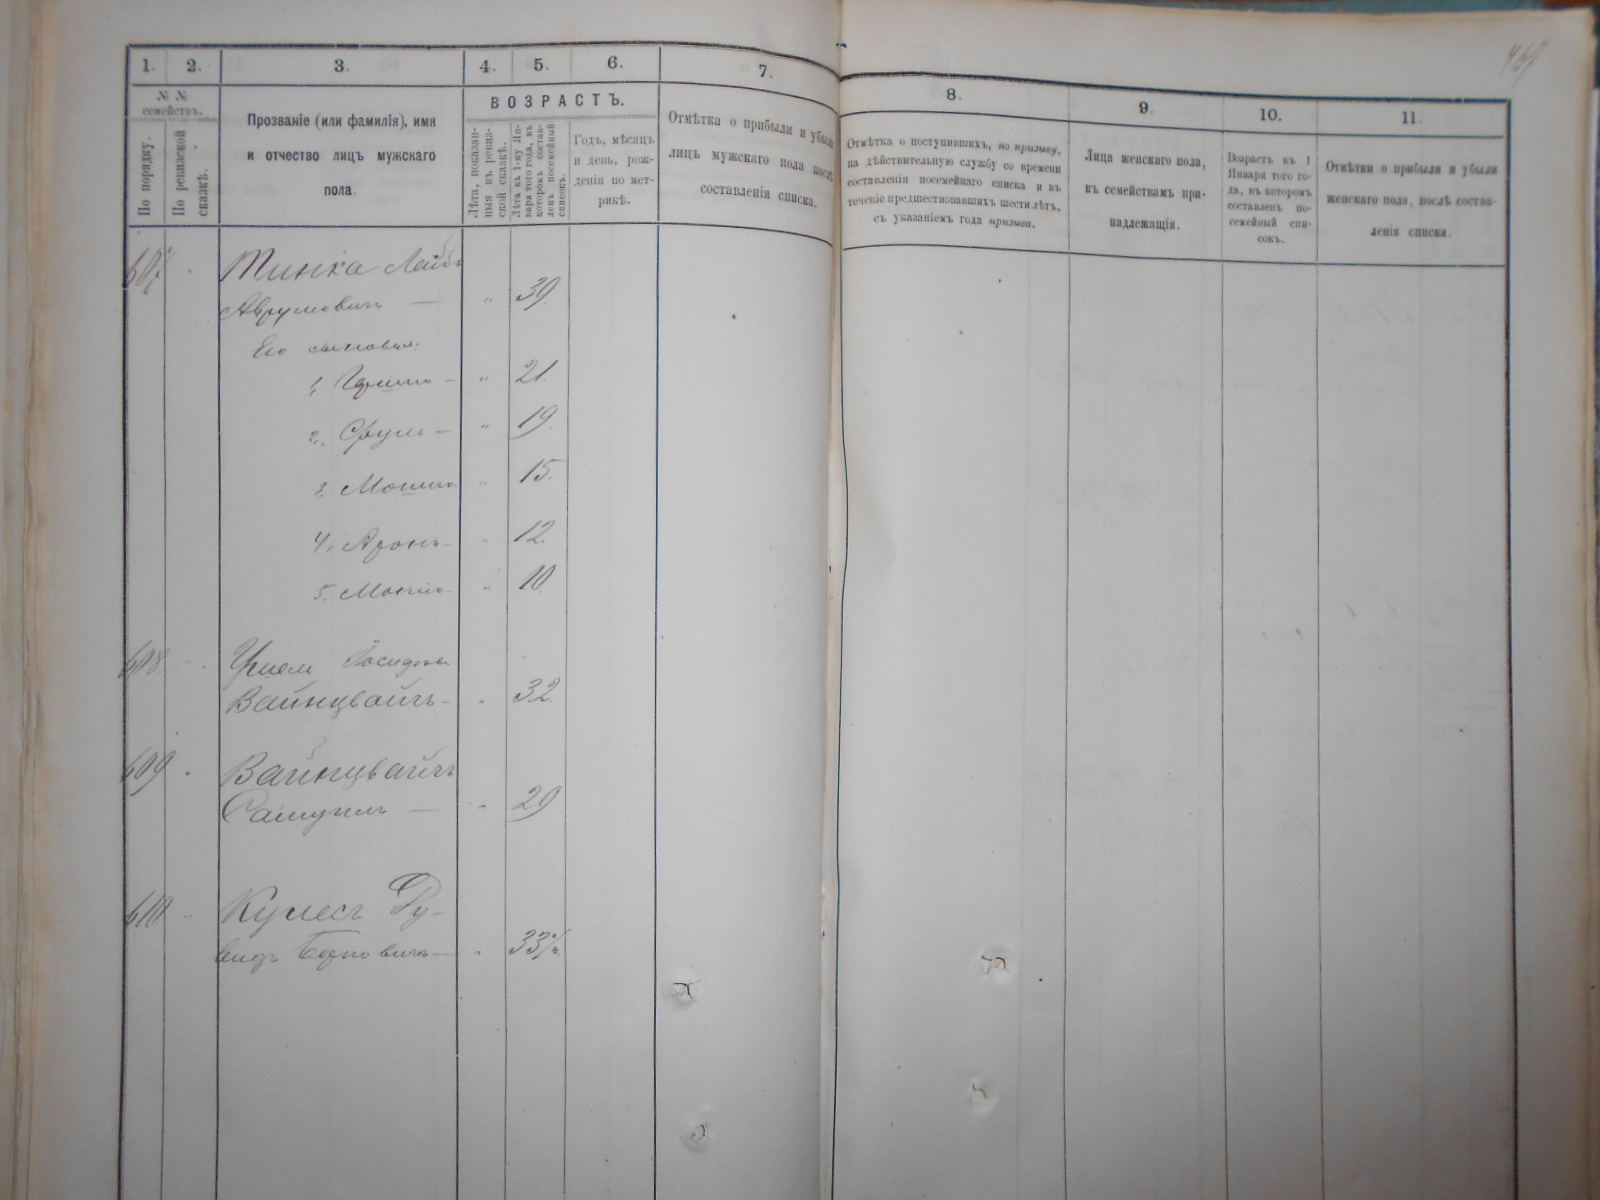 467
1. 2. 3. 4. 5. 6. 7.
№ № семействъ.
По порядку.
По ревизской сказкѣ.
Прозваніе (или фамилія), имя
и отчество лицъ мужскаго
пола.
ВОЗРАСТЪ.
Лѣта, показан-
ныя въ ревиз-
ской сказкѣ.
Лѣта къ 1-му Ян-
варя того года, въ
которомъ состав-
ленъ посемейный
списокъ.
Годъ, мѣсяцъ
и день, рож-
денія по мет-
рикѣ.
Отмѣтка о прибыли и убыли
лицъ мужскаго пола послѣ
составленія списка.
8. 9. 10. 11.
Отмѣтка о поступившихъ, по призыву,
на дѣйствительную службу со времени
составленія посемейнаго списка и въ
теченіе предшествовавшихъ шести лѣтъ,
съ указаніемъ года призыва.
Лица женскаго пола,
къ семействамъ при-
надлежащія.
Возрастъ къ 1
Января того го-
да, въ которомъ
составленъ по-
семейный спи-
сокъ.
Отмѣтки о прибыли и убыли
женскаго пола, послѣ состав-
ленія списка.
607 Тинка Лейбъ
Аврумовичъ — " 39.
Его сыновья:
1, — " 21.
2, Срулъ — " 19.
3. Мошко " 15.
4, Аронъ — " 12.
5. " 10.
608.
Вайнцвайгъ — " 32.
609 Вайнцвайгъ
Самуилъ — " 29
610 Ду-
видъ — " 33½